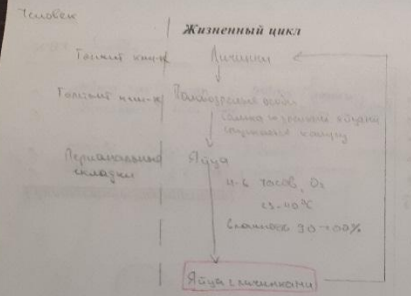 Человек
Жизненный цикл
Тонкий киш-к Личинки
Толстый киш-к Половозрелые особи
Самка со зрелыми яйцами
спускается
Перианальные складки Яйца
4-6 часов, O₂
23-40°C
влажность 90-100%
Яйца с личинками